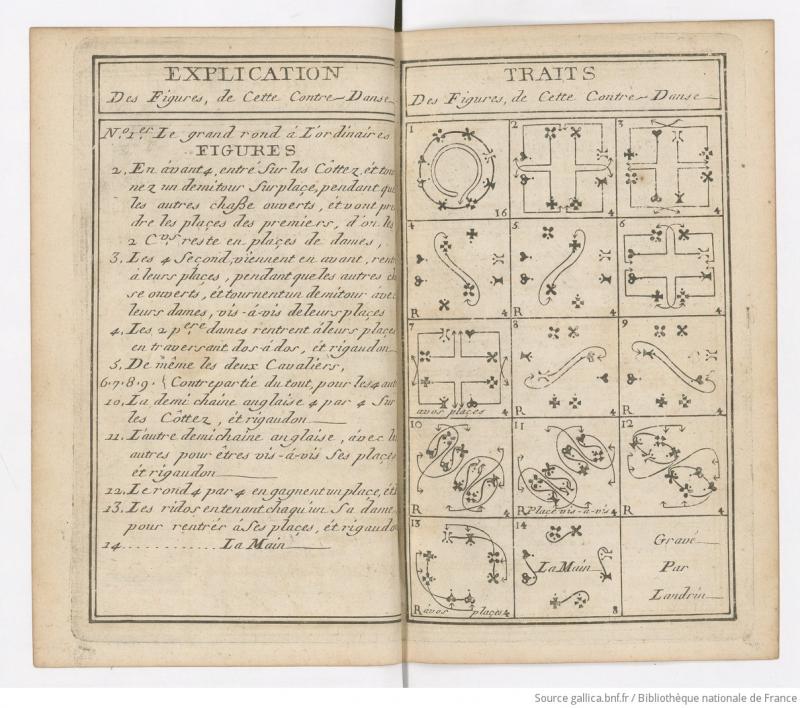 EXPLICATION
Des Figures, de Cette Contre-Danse
N.º 1.er Le grand rond á L'ordinaires
FIGURES
2. En avant 4, entré Sur les Côttez, ét tou
nez un demi tour Sur plaçe, pendant que
les autres chaße ouverts, ét vont pre
dre les plaçes des premiers, d'on les
2 C.vrs reste en plaçes de dames,
3. Les 4 Second, viennent en avant, rent
á leurs plaçes, pendant que les autres ch
se ouverts, ét tournent un demi tour avec
leurs dames, vis-á-vis de leurs plaçes
4. Les 2 p.ere dames rentrent á leurs plaçes
en traversant dos-á-dos, ét rigaudon
5. De même les deux Cavaliers,
6·7·8·9· Contrepartie du tout, pour les 4 aut
10. La demi chaîne anglaise 4 par 4 Sur
les Côttez, ét rigaudon
11. L'autre demi chaîne anglaise, avec le
autres pour êtres vis-á-vis Ses plaçes
ét rigaudon
12. Le rond 4 par 4 en gagnent un plaçe, ét
13. Les ridos en tenant chaqu'un Sa dame
pour rentrér á Ses plaçes, ét rigaudo
14............ La Main
TRAITS
Des Figures, de Cette Contre-Danse
1 16
2 4
3 4
4 R 4
5 R 4
6 4
7 avos plaçes 4
8 R 4
9 R 4
10 R 4
11 R Plaçe vis-á-vis 4
12 R 4
13 R ávos plaçes 4
14 La Main 8
Gravé
Par
Landrin
Source gallica.bnf.fr / Bibliothèque nationale de France